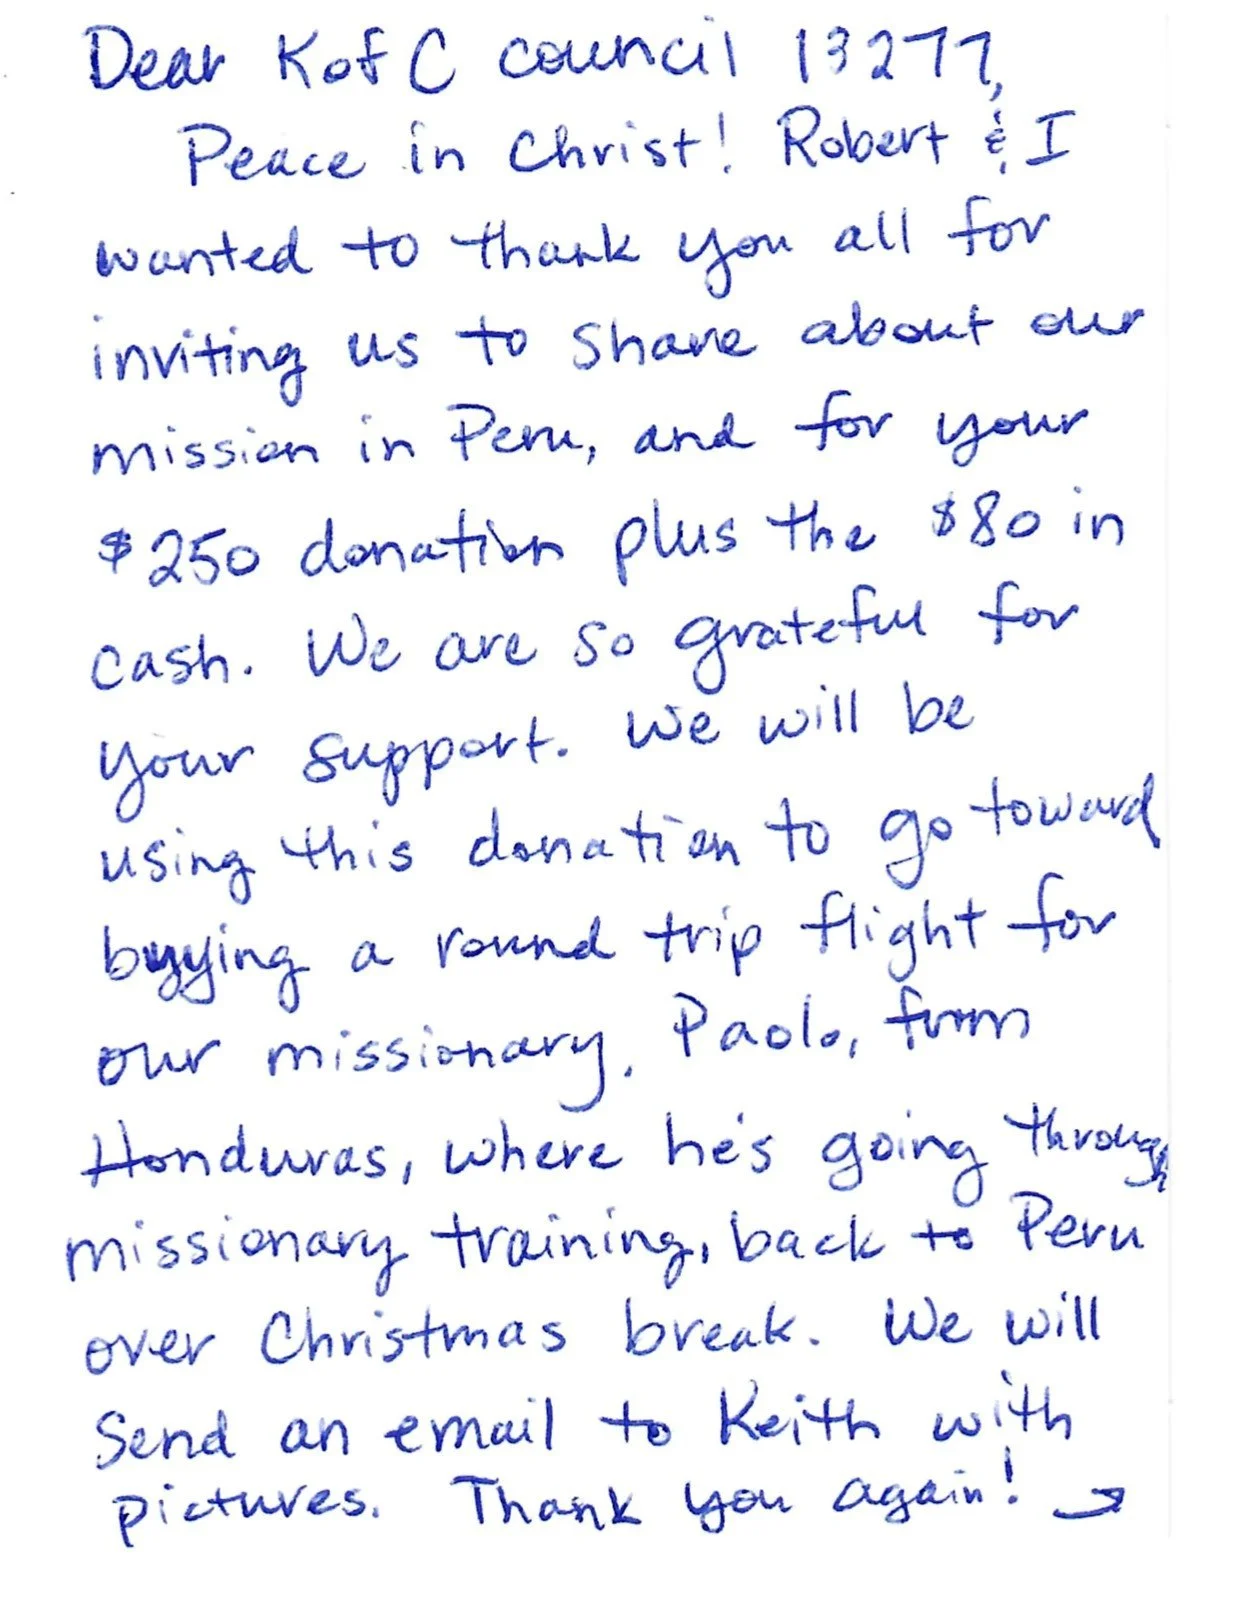 Dear K of C council 13277,
Peace in Christ! Robert & I
wanted to thank you all for
inviting us to share about our
mission in Peru, and for your
$250 donation plus the $80 in
cash. We are so grateful for
your support. We will be
using this donation to go toward
buying a round trip flight for
our missionary, Paolo, from
Honduras, where he's going through
missionary training, back to Peru
over Christmas break. We will
send an email to Keith with
pictures. Thank you again! →